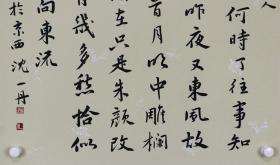 何時了往事知
昨夜又東風故
首月明中雕欄
在只是朱顏改
有幾多愁恰似
向東流
於京西沈一丹